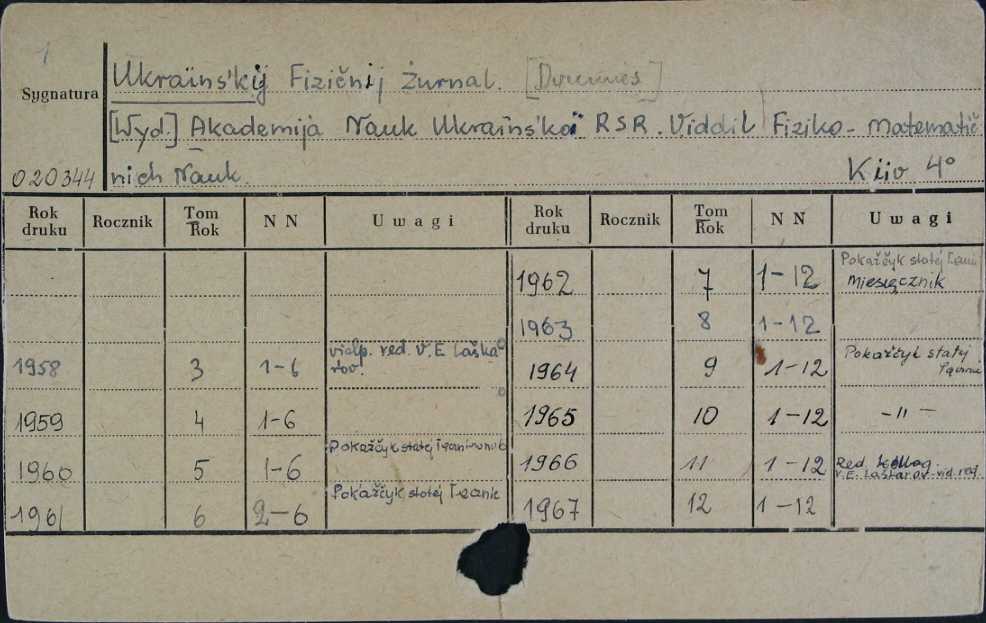 1
Sygnatura
020344
Ukraïns'kij Fizičnij Žurnal.
[Wyd.] Akademija Nauk Ukraïns'koï RSR. Viddil Fiziko-Matematič
nich Nauk. Kiiv 4°
Rok druku Rocznik Tom Rok NN Uwagi Rok druku Rocznik Tom Rok NN Uwagi
1962 7 1-12 Pokažčyk statej
Miesięcznik
1963 8 1-12
1958 3 1-6 vidp. red. V.E. Laška
rov. 1964 9 1-12 Pokažčyk statej
Łącznie
1959 4 1-6 1965 10 1-12 -"-
1960 5 1-6 Pokažčyk statej 1966 11 1-12 Red.
V.E. Laškarov vid. red.
1961 6 2-6 Pokažčyk statej Łącznie 1967 12 1-12